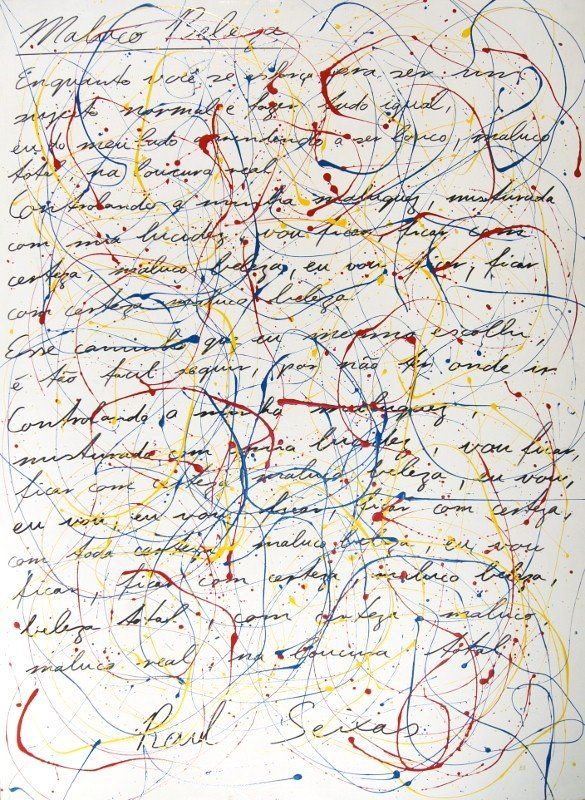 Maluco Beleza
Enquanto você se esforça pra ser um
sujeito normal e fazer tudo igual,
eu do meu lado aprendendo a ser louco, maluco
total, na loucura real
Controlando a minha maluquez, misturada
com mia lucidez vou ficar, ficar com
certeza, maluco beleza, eu vou ficar, ficar
com certeza maluco beleza
Esse caminho que eu mesmo escolhi,
é tão facil seguir, por não ter onde ir
Controlando a minha maluquez,
misturada com mia lucidez, vou ficar,
ficar com certeza maluco beleza, eu vou,
eu vou, eu vou, ficar ficar com certeza,
com toda certeza, maluco beleza, eu vou
ficar, ficar com certeza, maluco beleza,
beleza total, com certeza maluco
maluco real, na loucura total
Raul Seixas